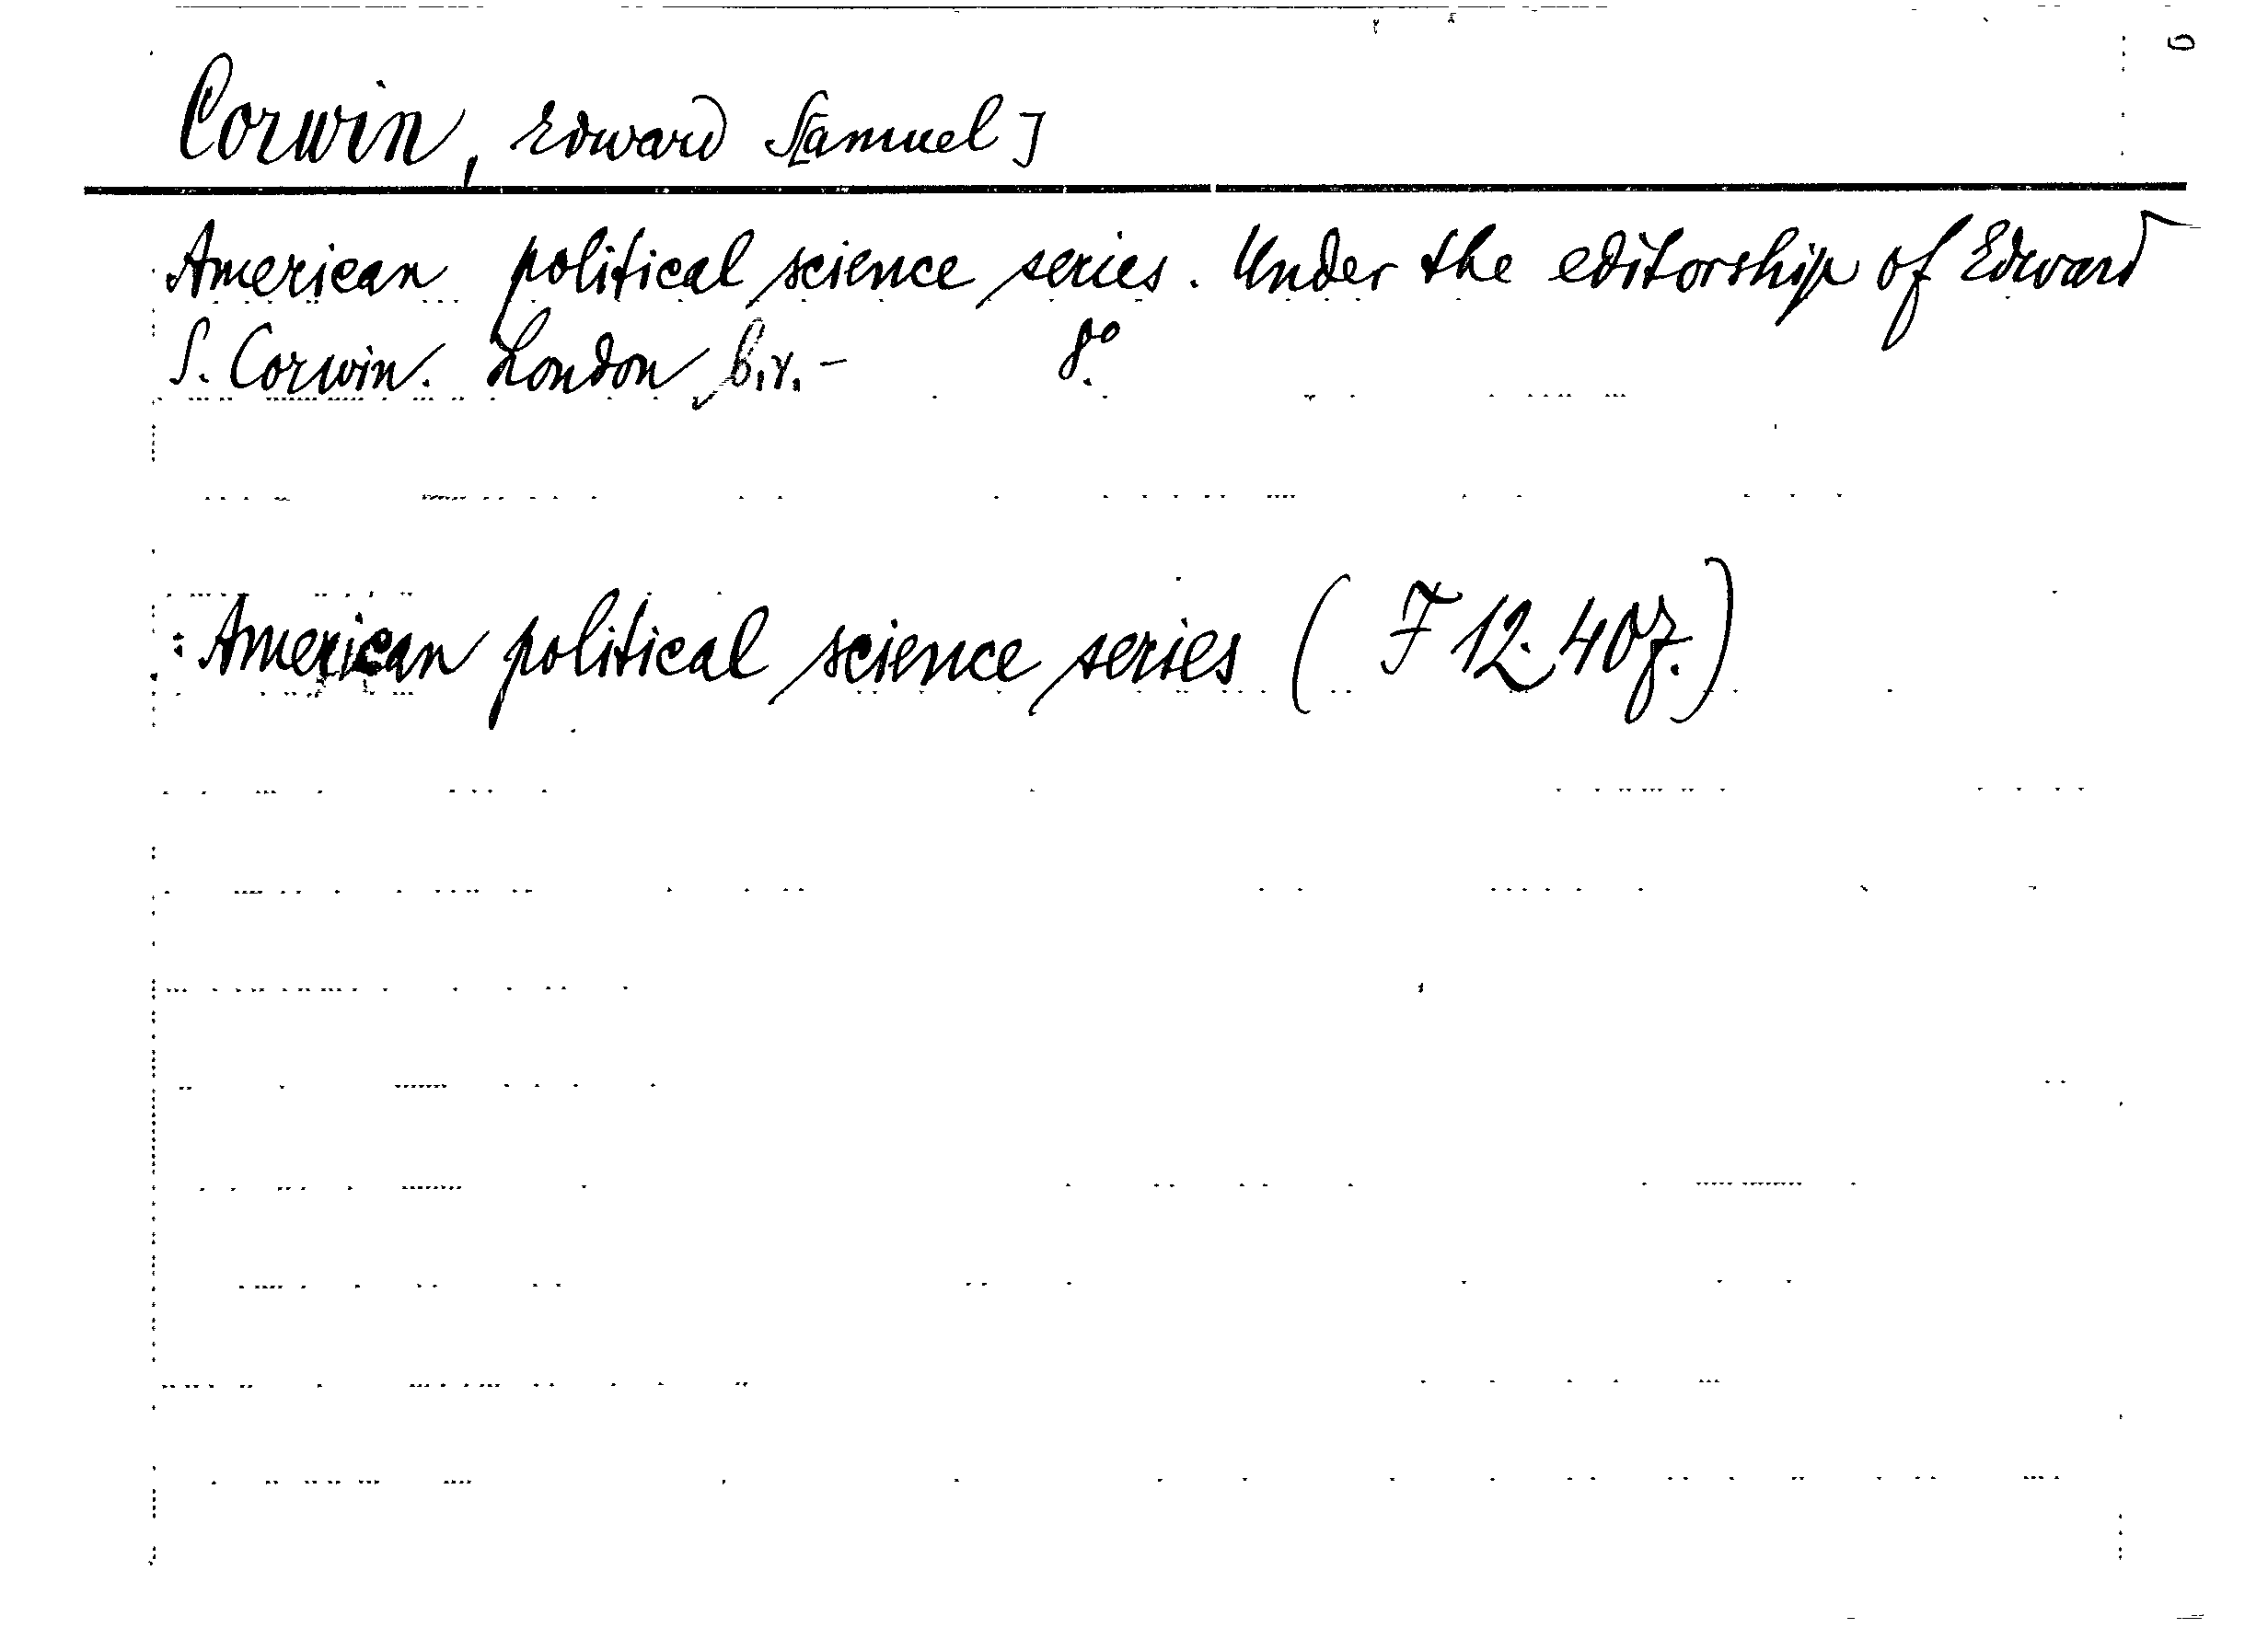 Corwin, Edward S[amuel]
American political science series. Under the editorship of Edward
S. Corwin. London b.r.- 8°.
: American political science series ( F 12. 407.)